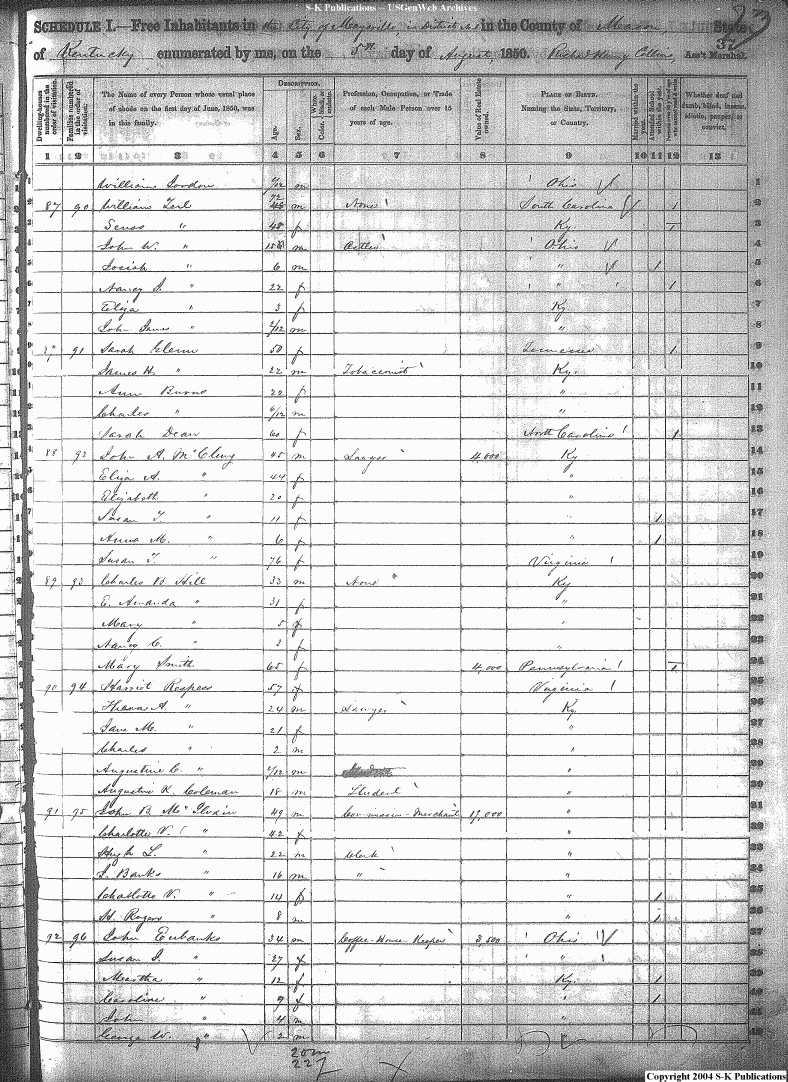 S-K Publications -- USGenWeb Archives
SCHEDULE I.—Free Inhabitants in the City of Maysville, in the County of Mason, State
of Kentucky enumerated by me, on the 5th day of August, 1850. Richard Henry Collins, Ass't Marshal.
Dwelling-houses numbered in the order of visitation. Families numbered in the order of visitation. The Name of every Person whose usual place of abode on the first day of June, 1850, was in this family. DESCRIPTION. Age. Sex. Profession, Occupation, or Trade of each Male Person over 15 years of age. Value of Real Estate owned. PLACE OF BIRTH. Naming the State, Territory, or Country. Married within the year. Attended School within the year. Whether deaf and dumb, blind, insane, idiotic, pauper, or convict.
1 2 3 4 5 6 7 8 9 10 11 12 13
1 William Ohio 1
2 87 90 William m None South Carolina 1 2
3 " 48 f Ky 1 3
4 John W. " m Ohio 4
5 Josiah " 6 m " 1 5
6 Nancy " 22 f " 1 6
7 Eliza " 3 f Ky 7
8 John James " 2/12 m " 8
9 91 Sarah Glenn 50 f Tennessee 1 9
10 James H. " 22 m Tobacconist Ky. 10
11 Ann Burns 22 f " 11
12 Charles " 6/12 m " 12
13 Sarah Dean 60 f North Carolina 1 13
14 88 92 John A. McClung 45 m Lawyer 4,000 Ky 14
15 Eliza A. " 44 f " 15
16 Elizabeth " 20 f " 16
17 Susan T. " 11 f " 1 17
18 Anna M. " 6 f " 1 18
19 Susan T. " 76 f Virginia 19
20 89 93 Charles B. Hill 33 m None Ky 20
21 E. Amanda " 31 f " 21
22 Mary " 5 f " 22
23 Nancy C. " 3 f " 23
24 Mary Smith 65 f 4,000 Pennsylvania 1 24
25 90 94 Harriot Respess 57 f Virginia 25
26 A. " 24 m Lawyer Ky. 26
27 Jane M. " 21 f " 27
28 Charles " 2 m " 28
29 Augustine C. " m " 29
30 Augustus K. Coleman 18 m Student " 30
31 91 95 John B. McIlvain 49 m Commission-Merchant 17,000 " 31
32 Charlotte V. " 42 f " 32
33 Hugh L. " 22 m Clerk " 33
34 J. Banks " 16 m " " 34
35 Charlotte V. " 14 f " 1 35
36 Rogers " 8 m " 1 36
37 92 96 John Eubanks 34 m Coffee-House-Keeper 3,500 Ohio 37
38 Susan J. " 27 f " 38
39 Martha " 12 f Ky. 1 39
40 Caroline " 9 f " 1 40
41 John " 4 m " 41
42 George W. " 2 m " 42
20 m
22 f
Copyright 2004 S-K Publications